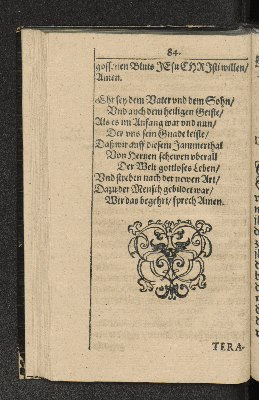 84.
gossenen Bluts JEsu CHRJsti willen/
Amen.
Ehr sey dem Vater vnd dem Sohn/
Vnd auch dem heiligen Geiste/
Als es im Anfang war vnd nun/
Der vns sein Gnade leiste/
Daß wir auff diesem Jammerthal
Von Hertzen schewen vberall
Der Welt gottloses Leben/
Vnd streben nach der newen Art/
Dazu der Mensch gebildet war/
Wer das begehrt/ sprech Amen.
TERA-